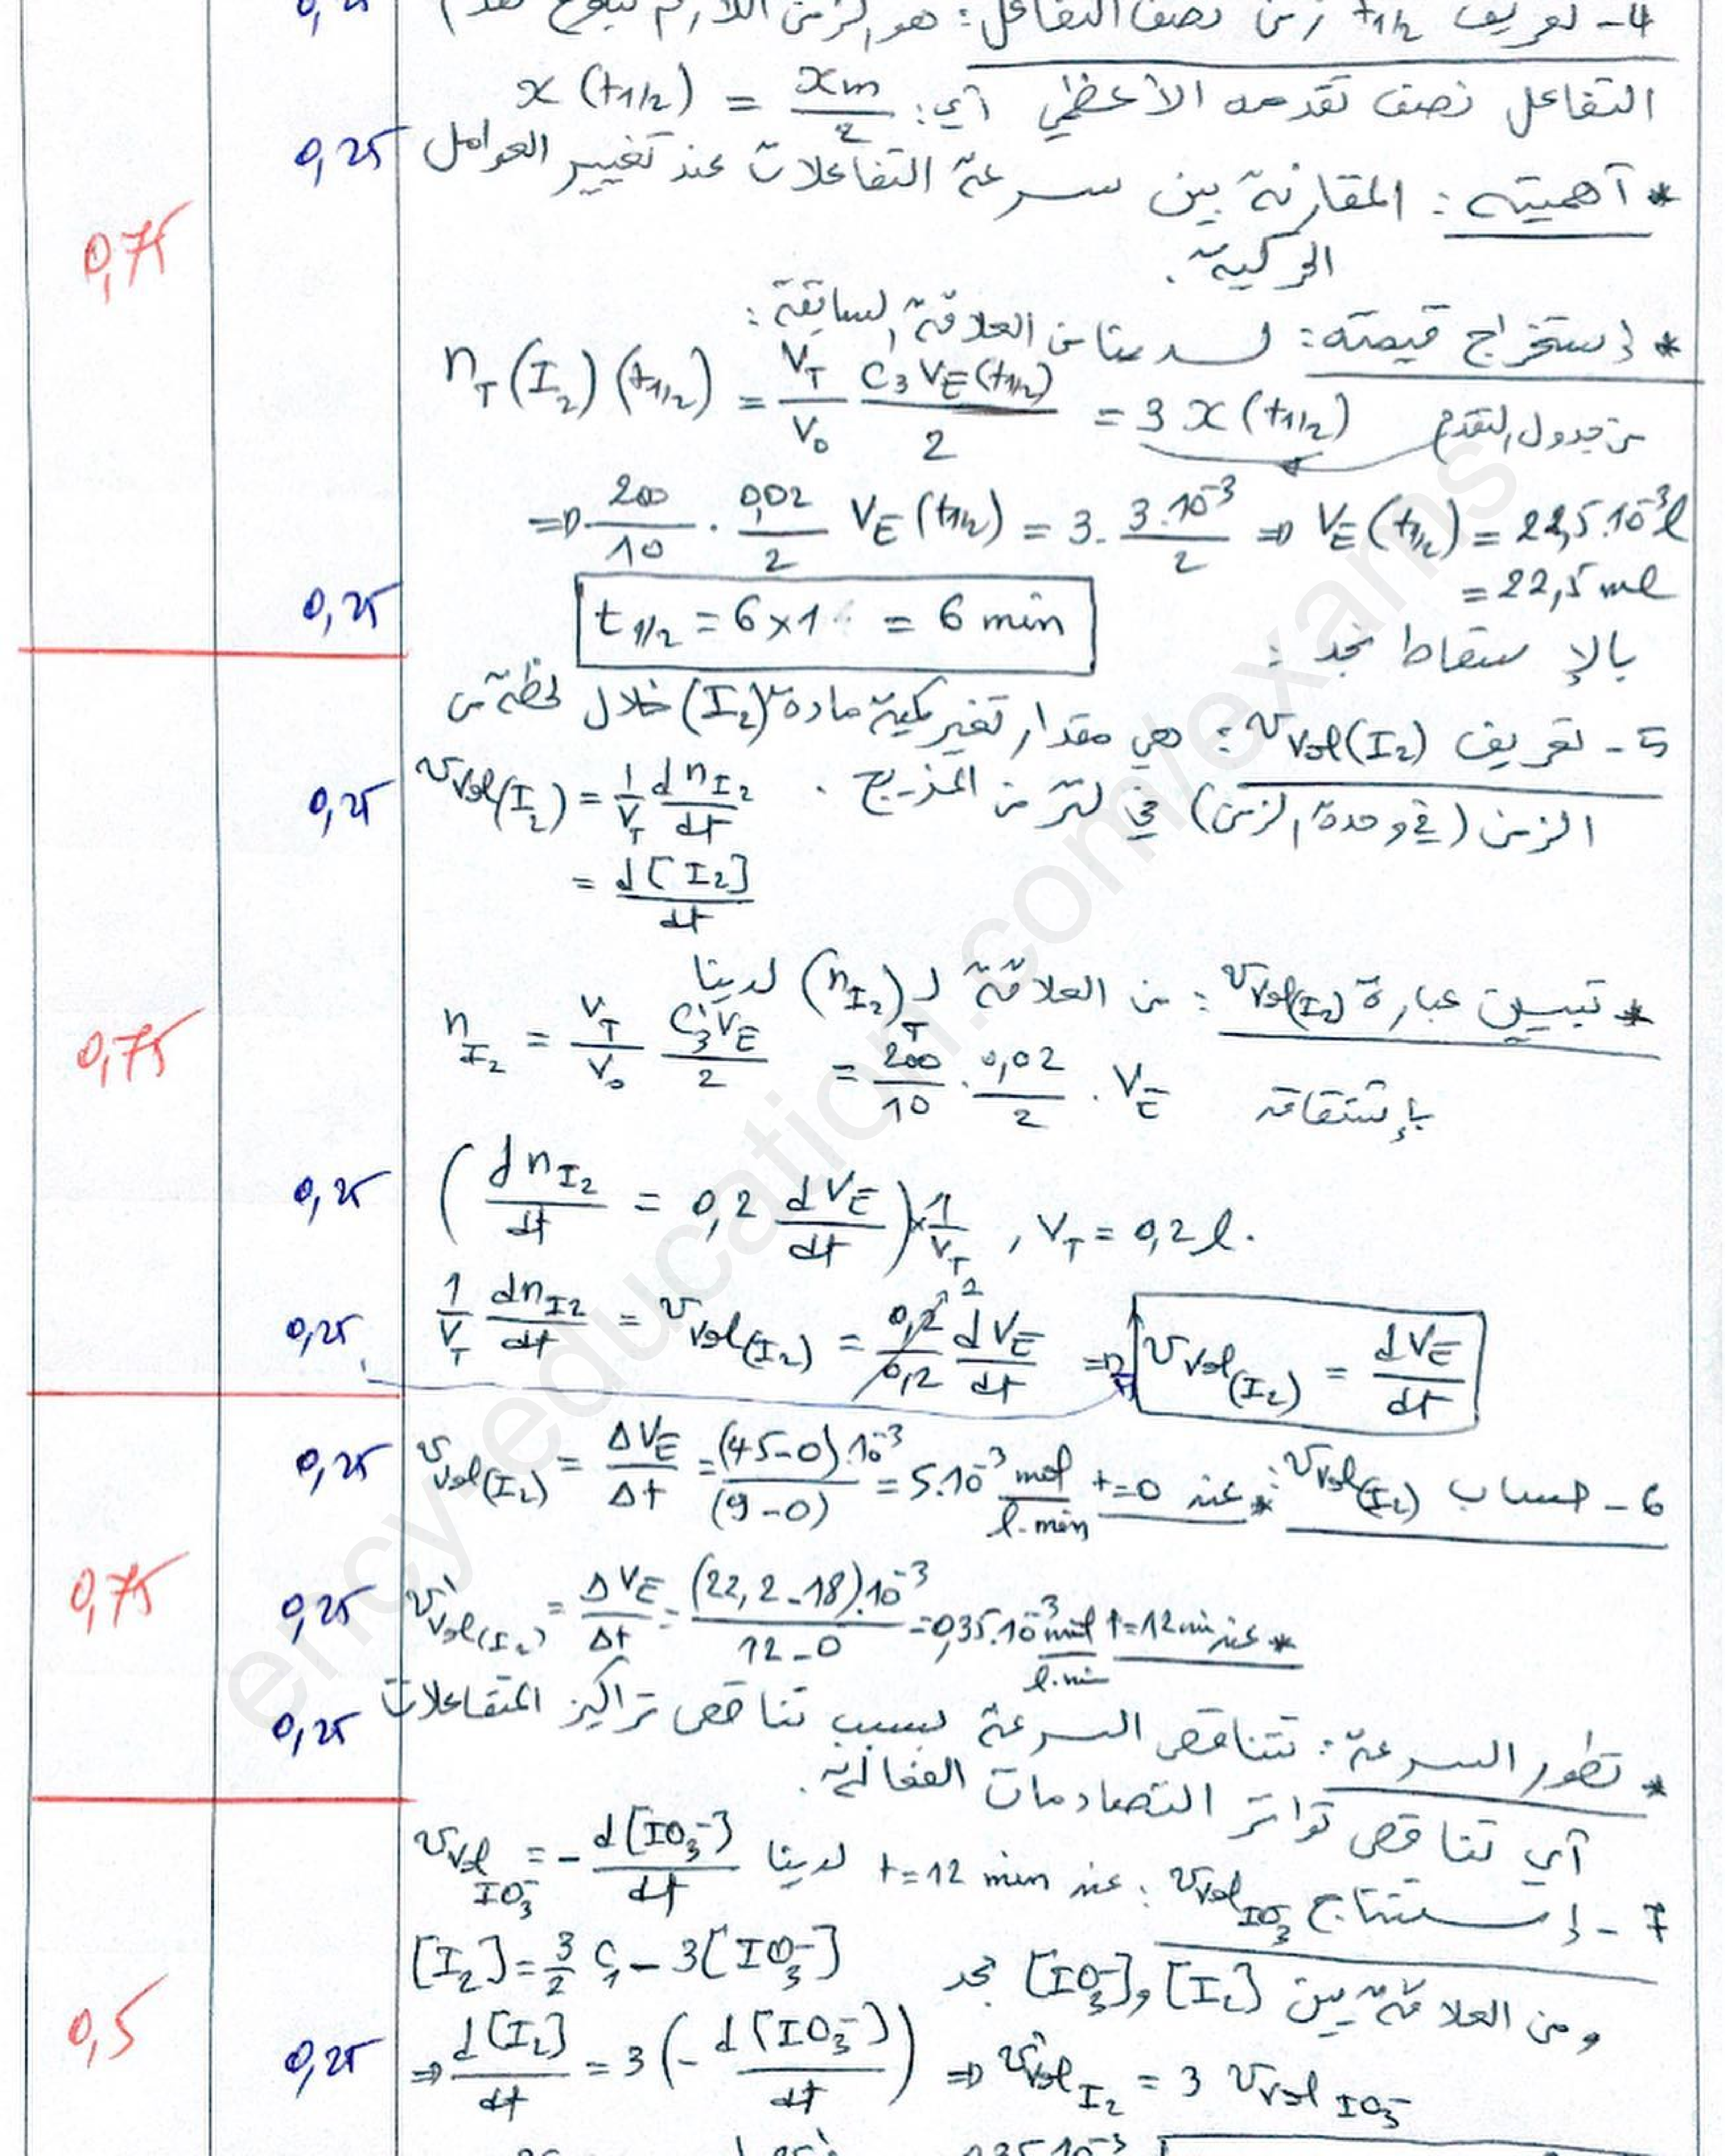 0,25
4- تعريف t1/2 زمن نصف التفاعل: هو الزمن اللازم لبلوغ تقدم
التفاعل نصف تقدمه الأعظمي أي: x(t1/2) = xm/2
0,25 * أهميته: المقارنة بين سرعة التفاعلات عند تغيير العوامل
الحركية.
0,75
* إستخراج قيمته: لدينا من العلاقة السابقة:
nT(I2)(t1/2) = VT/V0 C3'VE(t1/2)/2 = 3x(t1/2) من جدول التقدم
=> 200/10 . 0,02/2 VE(t1/2) = 3. 3.10^-3/2 => VE(t1/2) = 22,5.10^-3 l
= 22,5 ml
0,25 بالإسقاط نجد: t1/2 = 6x1 = 6 min
5- تعريف vVol(I2): هي مقدار تغير كمية مادة (I2) خلال لحظة من
الزمن (في وحدة الزمن) في لتر من المزيج.
0,25 vVol(I2) = 1/VT dnI2/dt
= d[I2]/dt
* تبيين عبارة vVol(I2): من العلاقة لـ (nI2)T لدينا
0,75
nI2 = VT/V0 C3'VE/2 = 200/10 . 0,02/2 . VE بإشتقاقه
0,25 (dnI2/dt = 0,2 dVE/dt) x 1/VT , VT = 0,2 l.
0,25 1/VT dnI2/dt = vVol(I2) = 0,2/0,2 dVE/dt => vVol(I2) = dVE/dt
6- حساب vVol(I2): * عند t=0
0,25 vVol(I2) = ΔVE/Δt = (45-0).10^-3/(9-0) = 5.10^-3 mol/l.min
0,75
* عند t=12min
0,25 v'Vol(I2) = ΔVE/Δt = (22,2-18).10^-3/12-0 = 0,35.10^-3 mol/l.min
0,25 * تطور السرعة: تتناقص السرعة بسبب تناقص تراكيز المتفاعلات
أي تناقص تواتر التصادمات الفعالة.
7- إستنتاج vVol IO3-: عند t=12 min لدينا vVol IO3- = - d[IO3-]/dt
ومن العلاقة بين [I2] و [IO3-] نجد [I2] = 3/2 C1 - 3[IO3-]
0,5
0,25 => d[I2]/dt = 3(- d[IO3-]/dt) => vVol I2 = 3 vVol IO3-
ency-education.com/exams